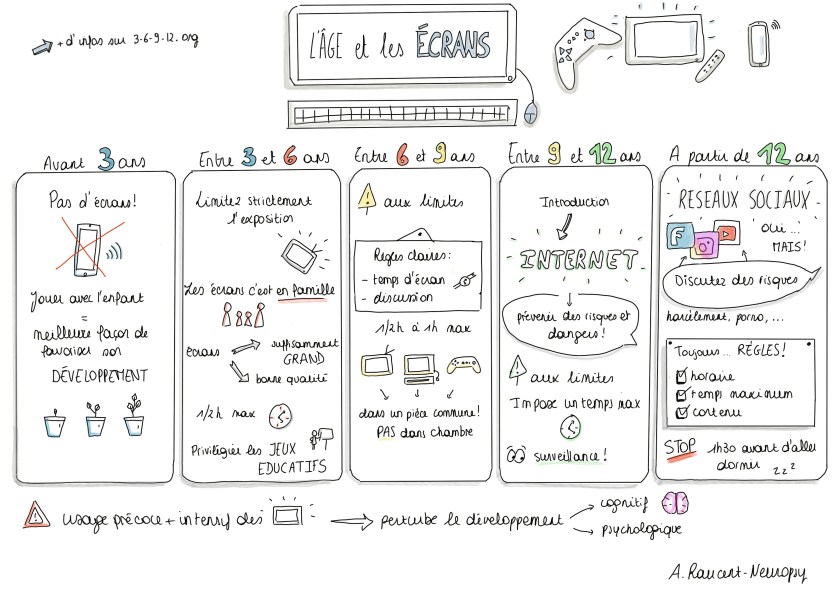 + d'infos sur 3-6-9-12.org
L'ÂGE et les ÉCRANS
Avant 3 ans
Pas d'écrans!
Jouer avec l'enfant
=
meilleure façon de
favoriser son
DÉVELOPPEMENT
Entre 3 et 6 ans
Limitez strictement
l'exposition
Les écrans c'est en famille
écrans
suffisamment
GRAND
bonne qualité
1/2h max
Privilégier les JEUX
EDUCATIFS
Entre 6 et 9 ans
! aux limites
Règles claires:
- temps d'écran
- discussion
1/2h à 1h max
dans un pièce commune!
PAS dans chambre
Entre 9 et 12 ans
Introduction
INTERNET
prévenir des risques et
dangers!
! aux limites
Impose un temps max
surveillance!
A partir de 12 ans
RESEAUX SOCIAUX
F
oui...
MAIS!
Discutez des risques
harcèlement, porno, ...
Toujours... RÈGLES!
horaire
temps maximum
contenu
STOP 1h30 avant d'aller
dormir zzz
! usage précoce + intensif des
perturbe le développement
cognitif
psychologique
A. Raucent-Neuropsy